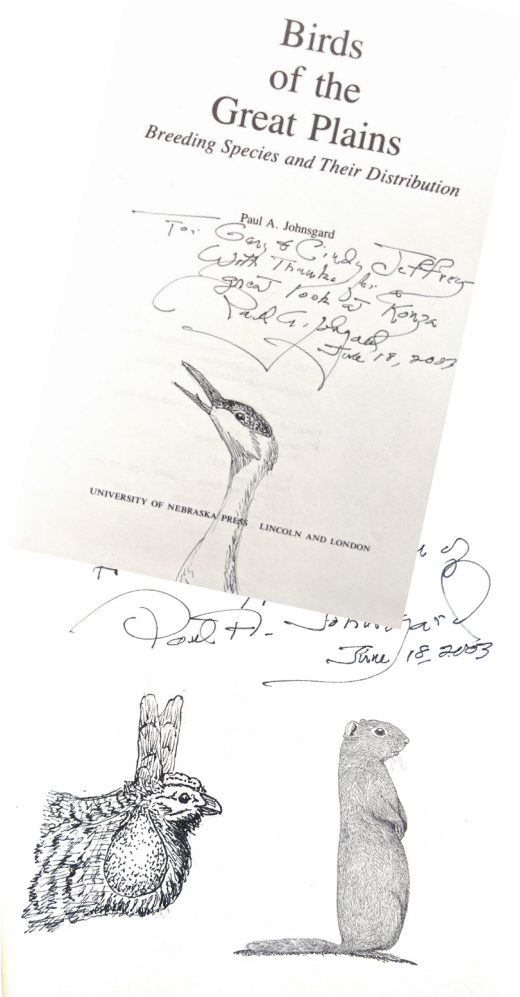 Birds
of the
Great Plains
Breeding Species and Their Distribution
Paul A. Johnsgard
To: Gary & Cindy Jeffrey
With Thanks for a
great look at Konza
Paul A. Johnsgard
June 18, 2003
UNIVERSITY OF NEBRASKA PRESS LINCOLN AND LONDON
of
Paul A. Johnsgard
June 18, 2003